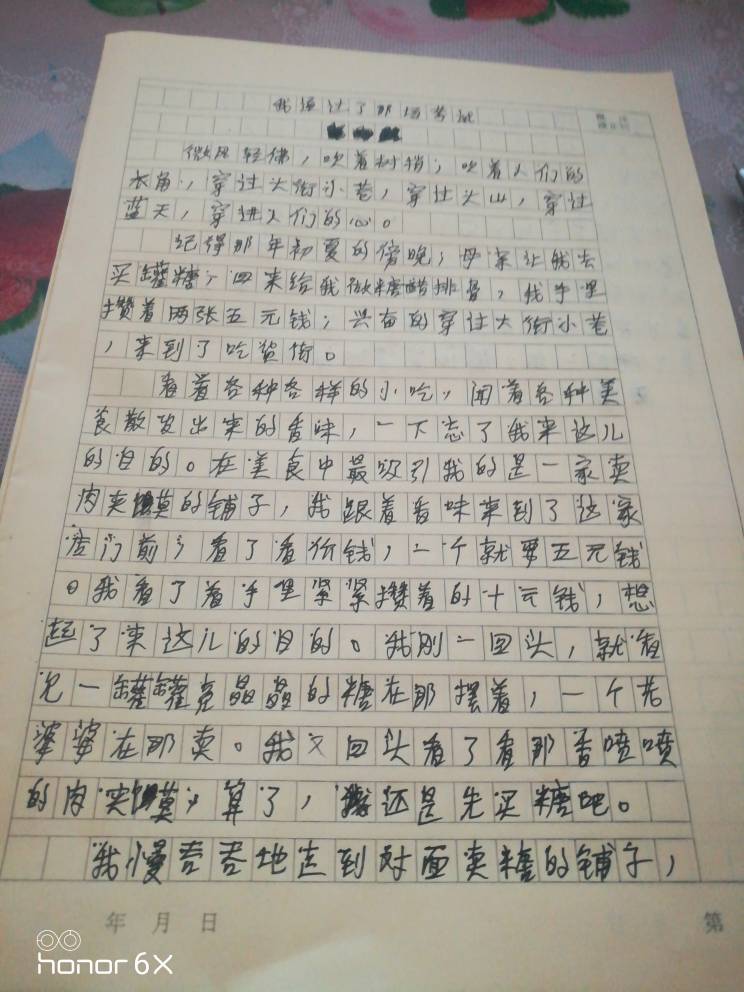 我通过了那场考试
微风轻拂，吹着树梢；吹着人们的
衣角，穿过大街小巷，穿过大山，穿过
蓝天，穿进人们的心。
记得那年初夏的傍晚，母亲让我去
买罐糖，回来给我做糖醋排骨，我手里
攒着两张五元钱；兴奋的穿过大街小巷
，来到了吃货街。
看着各种各样的小吃，闻着各种美
食散发出来的香味，一下忘了我来这儿
的目的。在美食中最吸引我的是一家卖
肉夹馍的铺子，我跟着香味来到了这家
店门前，看了看价钱，一个就要五元钱
。我看了着手里紧紧攒着的十元钱，想
起了来这儿的目的。我刚一回头，就看
见一罐罐亮晶晶的糖在那摆着，一个老
婆婆在那卖。我又回头看了看那香喷喷
的肉夹馍，算了，我还是先买糖吧。
我慢吞吞地走到对面卖糖的铺子，
年 月 日
第
honor 6X